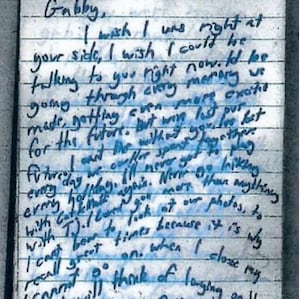 Gabby,
I wish I was right at
your side, I wish I could be
talking to you right now. I'd be
going through every memory we
made, getting even more excited
for the future. But we've lost our
future. I can't live without you. I've lost
every day we could've spent together,
every holiday. I'll never get to play
with again. Never go hiking
with T.J. I loved you more than anything
I can't bear to look at our photos, to
recall great times because it is why
I cannot go on. When I close my
will think of laughing on